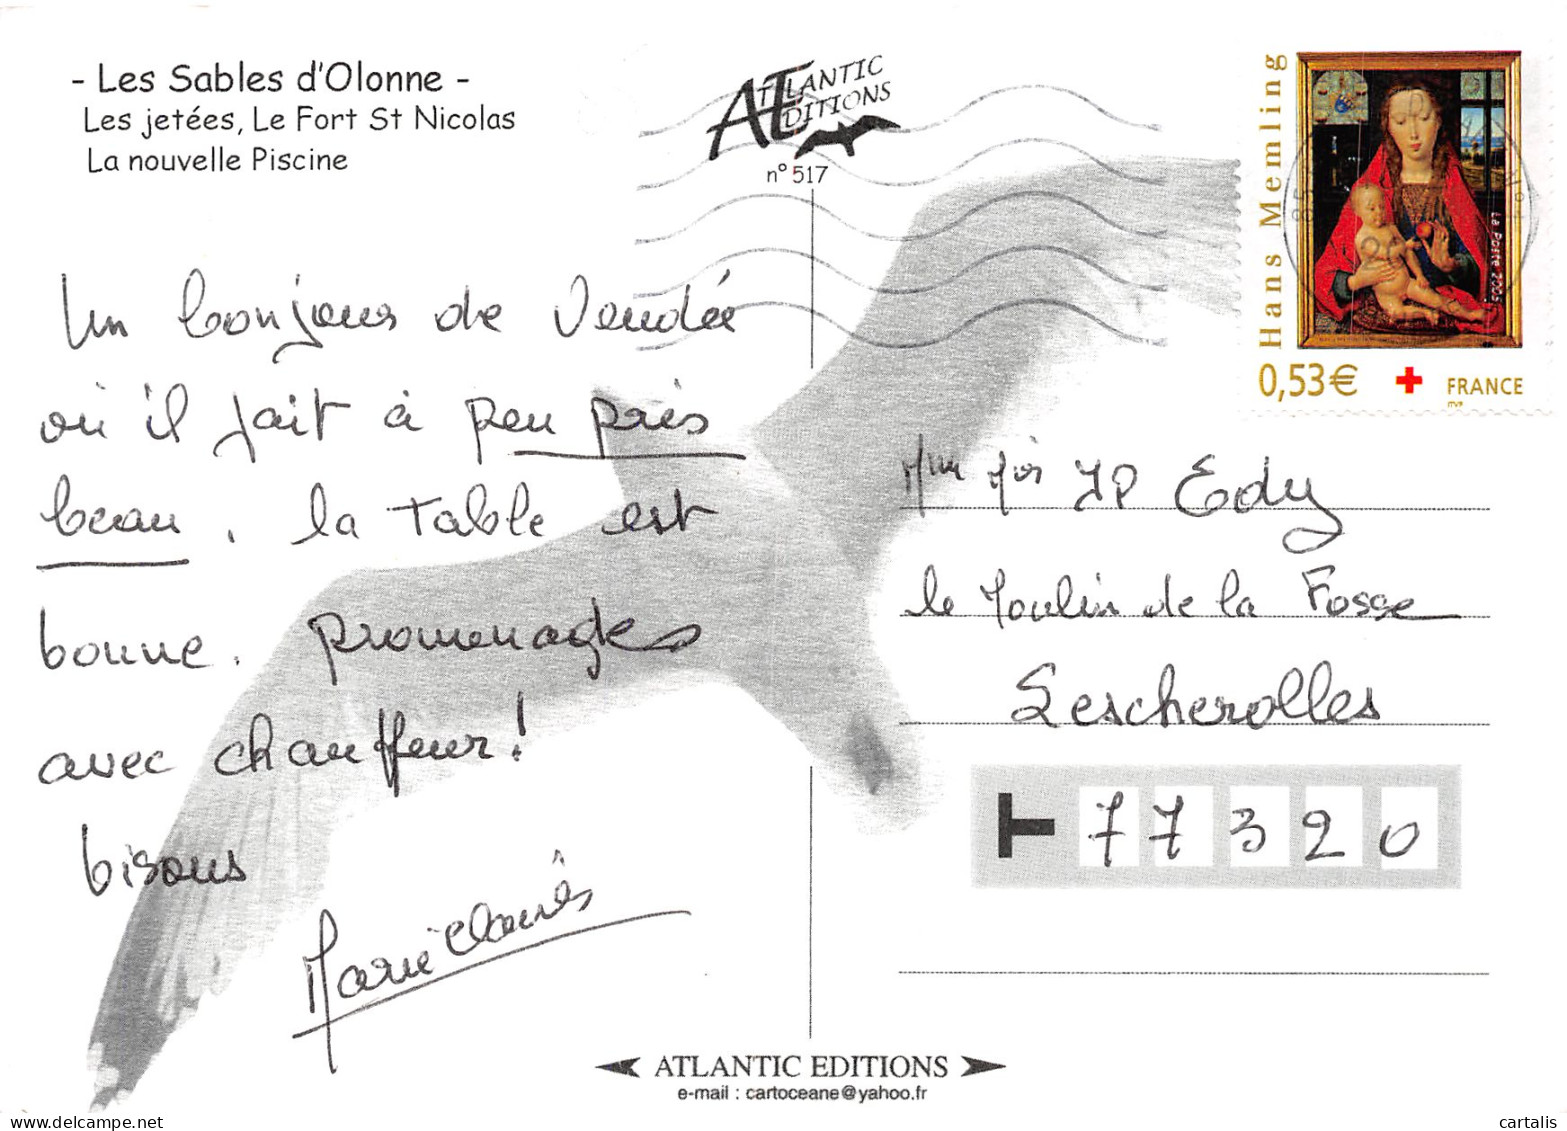 - Les Sables d'Olonne -
Les jetées, Le Fort St Nicolas
La nouvelle Piscine
ATLANTIC
EDITIONS
n° 517
Hans Memling
La Poste 2005
0,53€ FRANCE
ITVF
Un bonjour de Vendée
où il fait à peu près
beau. la table est
bonne. promenades
avec chauffeur!
bisous
Marie
Mme Mr JP Edy
le Moulin de la Fosse
Lescherolles
T 77320
ATLANTIC EDITIONS
e-mail : cartoceane@yahoo.fr
delcampe.net
cartalis